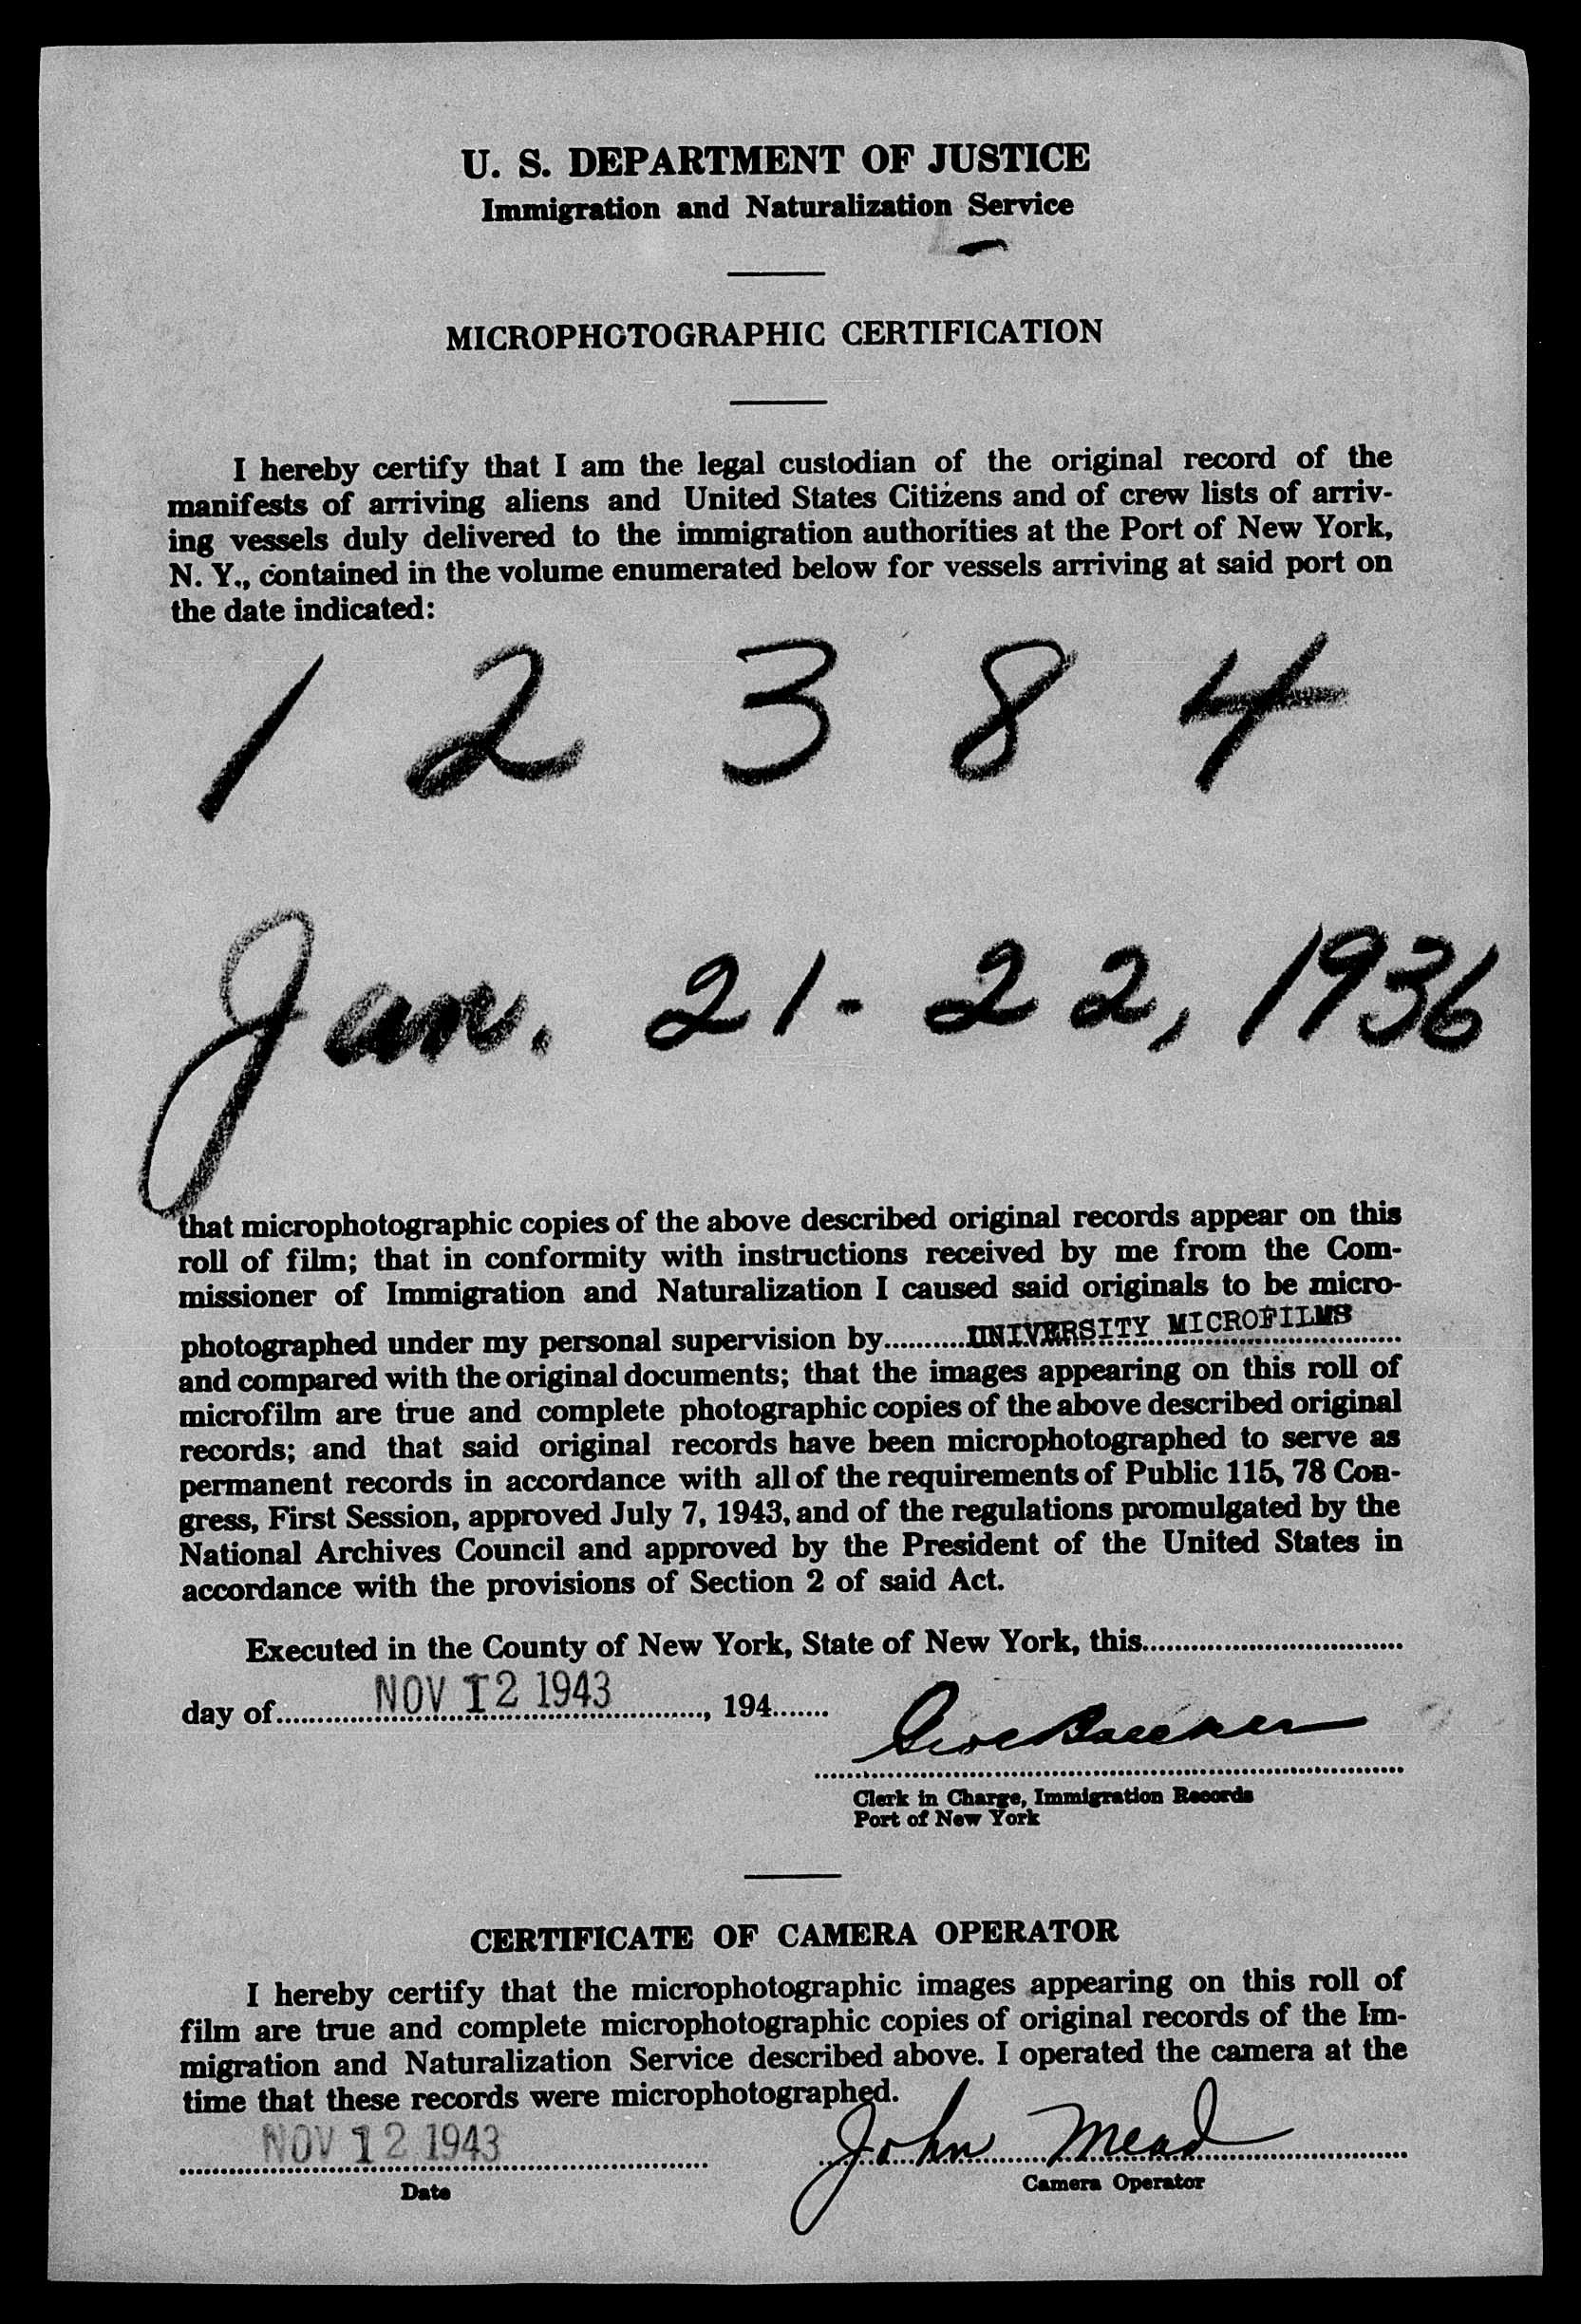 U. S. DEPARTMENT OF JUSTICE
Immigration and Naturalization Service
MICROPHOTOGRAPHIC CERTIFICATION
I hereby certify that I am the legal custodian of the original record of the
manifests of arriving aliens and United States Citizens and of crew lists of arriv-
ing vessels duly delivered to the immigration authorities at the Port of New York,
N. Y., contained in the volume enumerated below for vessels arriving at said port on
the date indicated:
1 2 3 8 4
Jan. 21-22, 1936
that microphotographic copies of the above described original records appear on this
roll of film; that in conformity with instructions received by me from the Com-
missioner of Immigration and Naturalization I caused said originals to be micro-
photographed under my personal supervision by..........UNIVERSITY MICROFILMS
and compared with the original documents; that the images appearing on this roll of
microfilm are true and complete photographic copies of the above described original
records; and that said original records have been microphotographed to serve as
permanent records in accordance with all of the requirements of Public 115, 78 Con-
gress, First Session, approved July 7, 1943, and of the regulations promulgated by the
National Archives Council and approved by the President of the United States in
accordance with the provisions of Section 2 of said Act.
Executed in the County of New York, State of New York, this................................
day of............NOV 12 1943............, 194.......
Clerk in Charge, Immigration Records
Port of New York
CERTIFICATE OF CAMERA OPERATOR
I hereby certify that the microphotographic images appearing on this roll of
film are true and complete microphotographic copies of original records of the Im-
migration and Naturalization Service described above. I operated the camera at the
time that these records were microphotographed.
NOV 12 1943 John Mead
Date Camera Operator